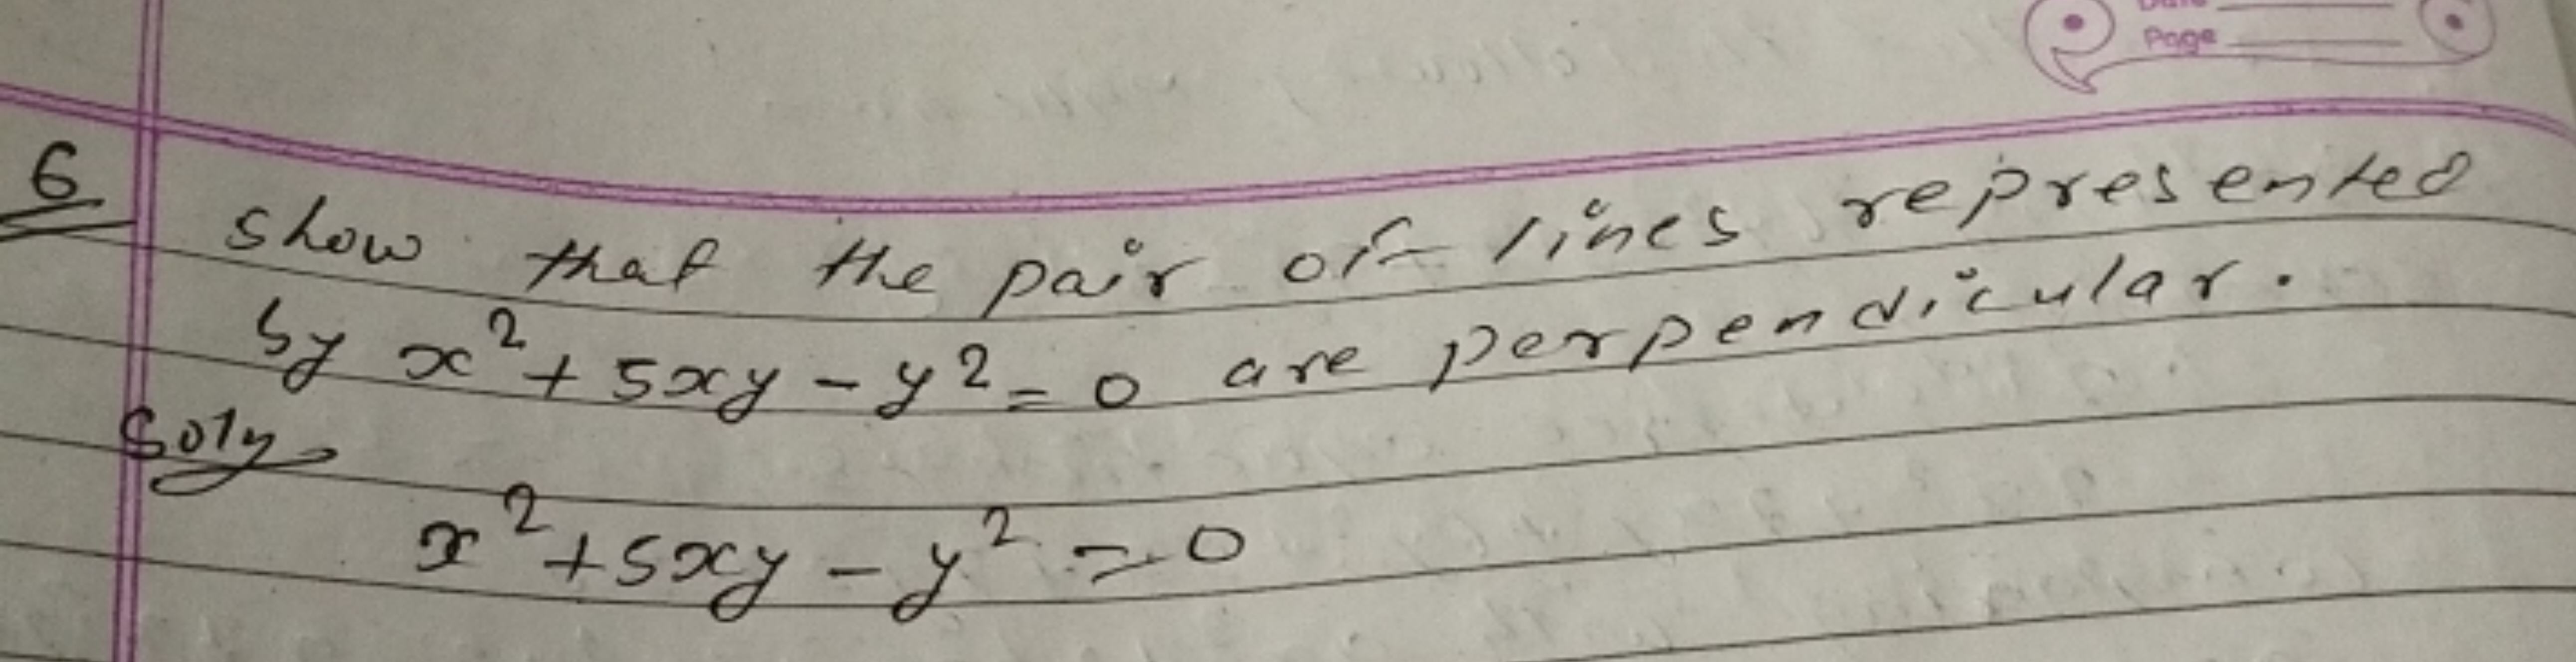 Date
Page
6
show that the pair of lines represented
by x² + 5xy - y² = 0 are perpendicular.
Soln
x² + 5xy - y² = 0